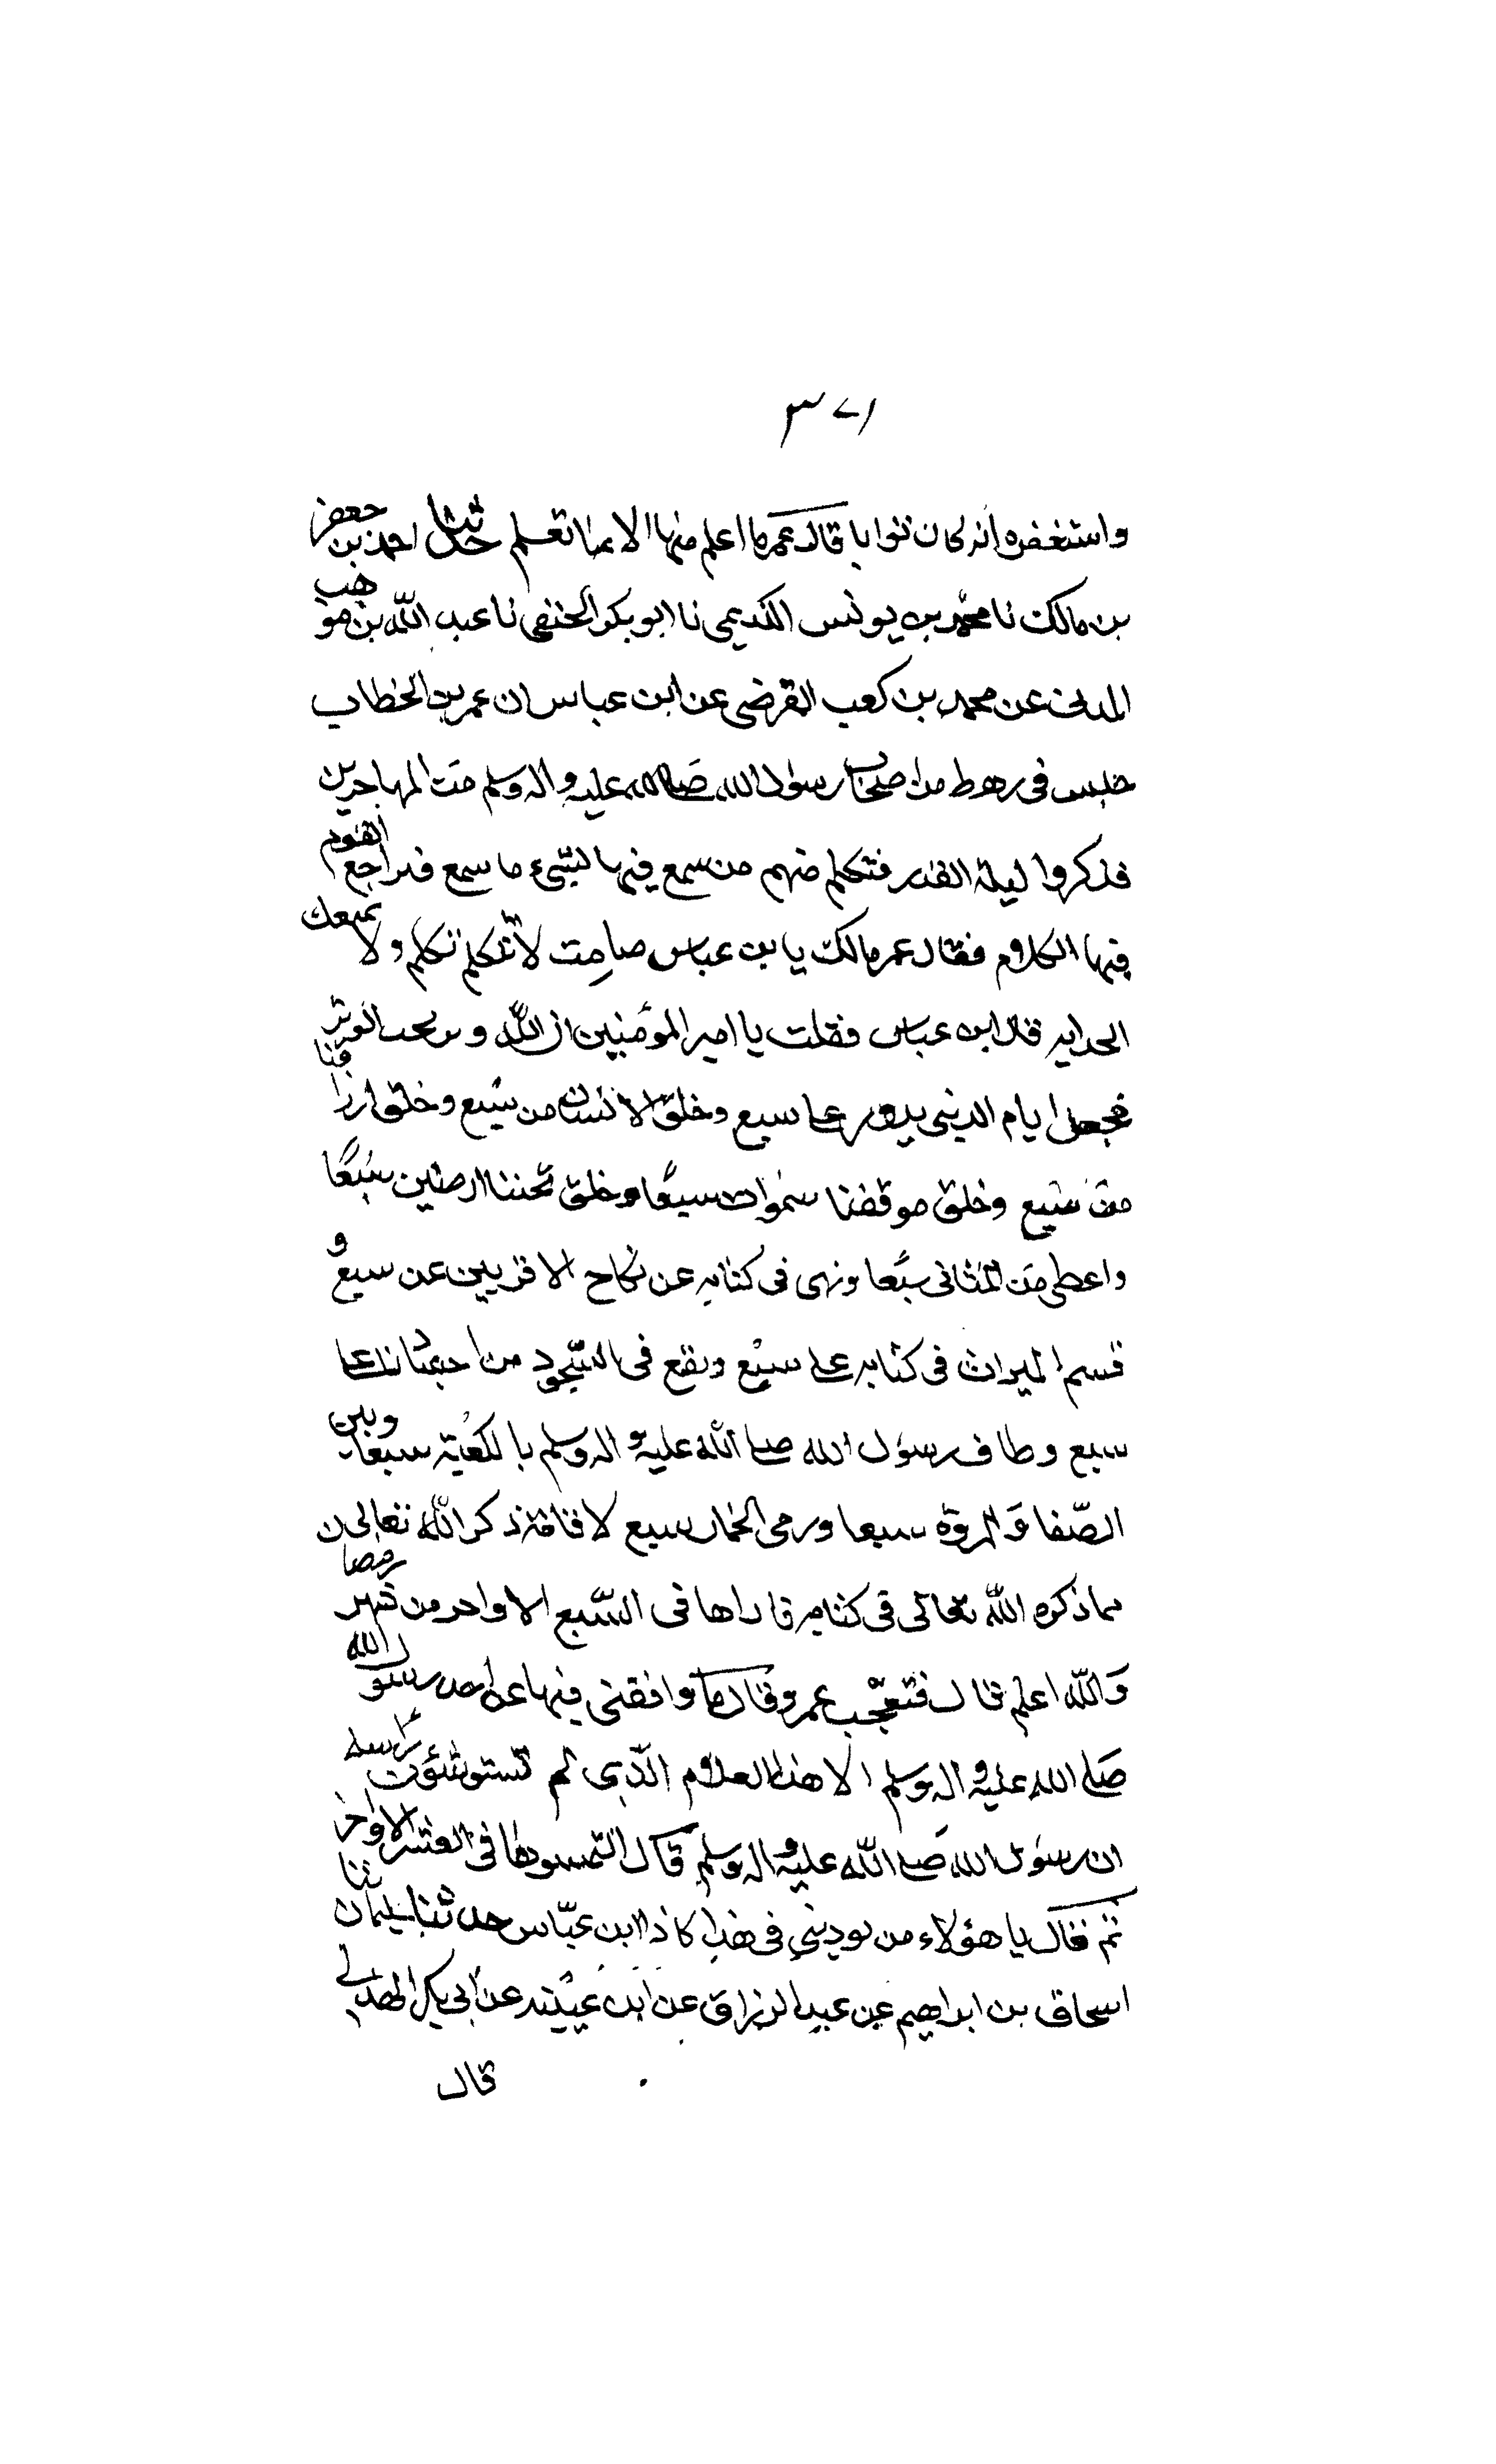 ٣٧١
واستغفره انه كان توابا قال عمر ما اعلم منها الا ما تعلم حدثنا احمد بن جعفر
بن مالك نا محمد بن يونس الكديمي نا ابو بكر الحنفي نا عبد الله بن موهب
المدنى عن محمد بن كعب القرضى عن ابن عباس ان عمر بن الخطاب
جلس فى رهط من اصحاب رسول الله صلى الله عليه واله وسلم من المهاجرين
فذكروا ليلة القدر فتكلم منهم من سمع فيها بشىء ما سمع فتراجع القوم
فيها الكلام فقال عمر مالك يا بن عباس صامت لا تتكلم تكلم ولا تمنعك
الحداثه قال ابن عباس فقلت يا امير المؤمنين ان الله وتر يحب الوتر
فجعل ايام الدنيى يدور على سبع وخلق الانسان من سبع وخلق ارزاقنا
من سبع وخلق موقفنا سموات سبعا وخلق تحتنا ارضين سبعا
واعطى من المثانى سبعا ونهى فى كتابه عن نكاح الاقربين عن سبع و
قسم الميراث فى كتابه على سبع ونقع فى السجود من اجسادنا على
سبع وطاف رسول الله صلى الله عليه واله وسلم بالكعبة سبعا وبين
الصفا والمروة سبعا ورمى الجمار سبع لاقامة ذكر الله تعالى
مما ذكره الله تعالى فى كتابه فاراها فى السبع الاواخر من شهر رمضان
والله اعلم قال فتعجب عمر وقال ما وافقنى فيها عن احد رسول الله
صلى الله عليه واله وسلم الا هذا الغلام الذى لم تستو شئون راسه
ان رسول الله صلى الله عليه واله وسلم قال التمسوها فى العشر الاواخر
ثم فقال يا هؤلاء من يودينى فى هذا كاذا ابن عباس حدثنا سليمان ثنا
اسحاق بن ابراهيم عن عبد الرزاق عن ابن عيينه عن ابى بكر الهذلى
قال